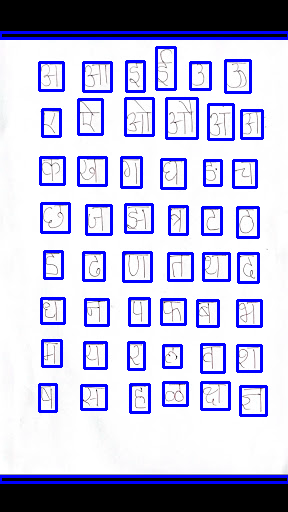 अ आ इ ई उ ऊ
ए ऐ ओ औ अ अ
क ख ग घ ङ च
छ ज झ ञ ट ठ
ड ढ ण त थ द
ध न प फ ब भ
म य र ल व श
ष स ह ळ क्ष ज्ञ